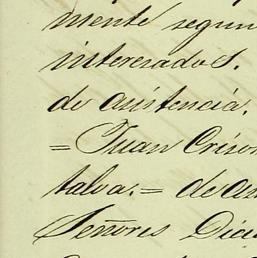 mente segun
interesados.
de asistencia.
= Juan Criso
talva. = de
Señores Dic